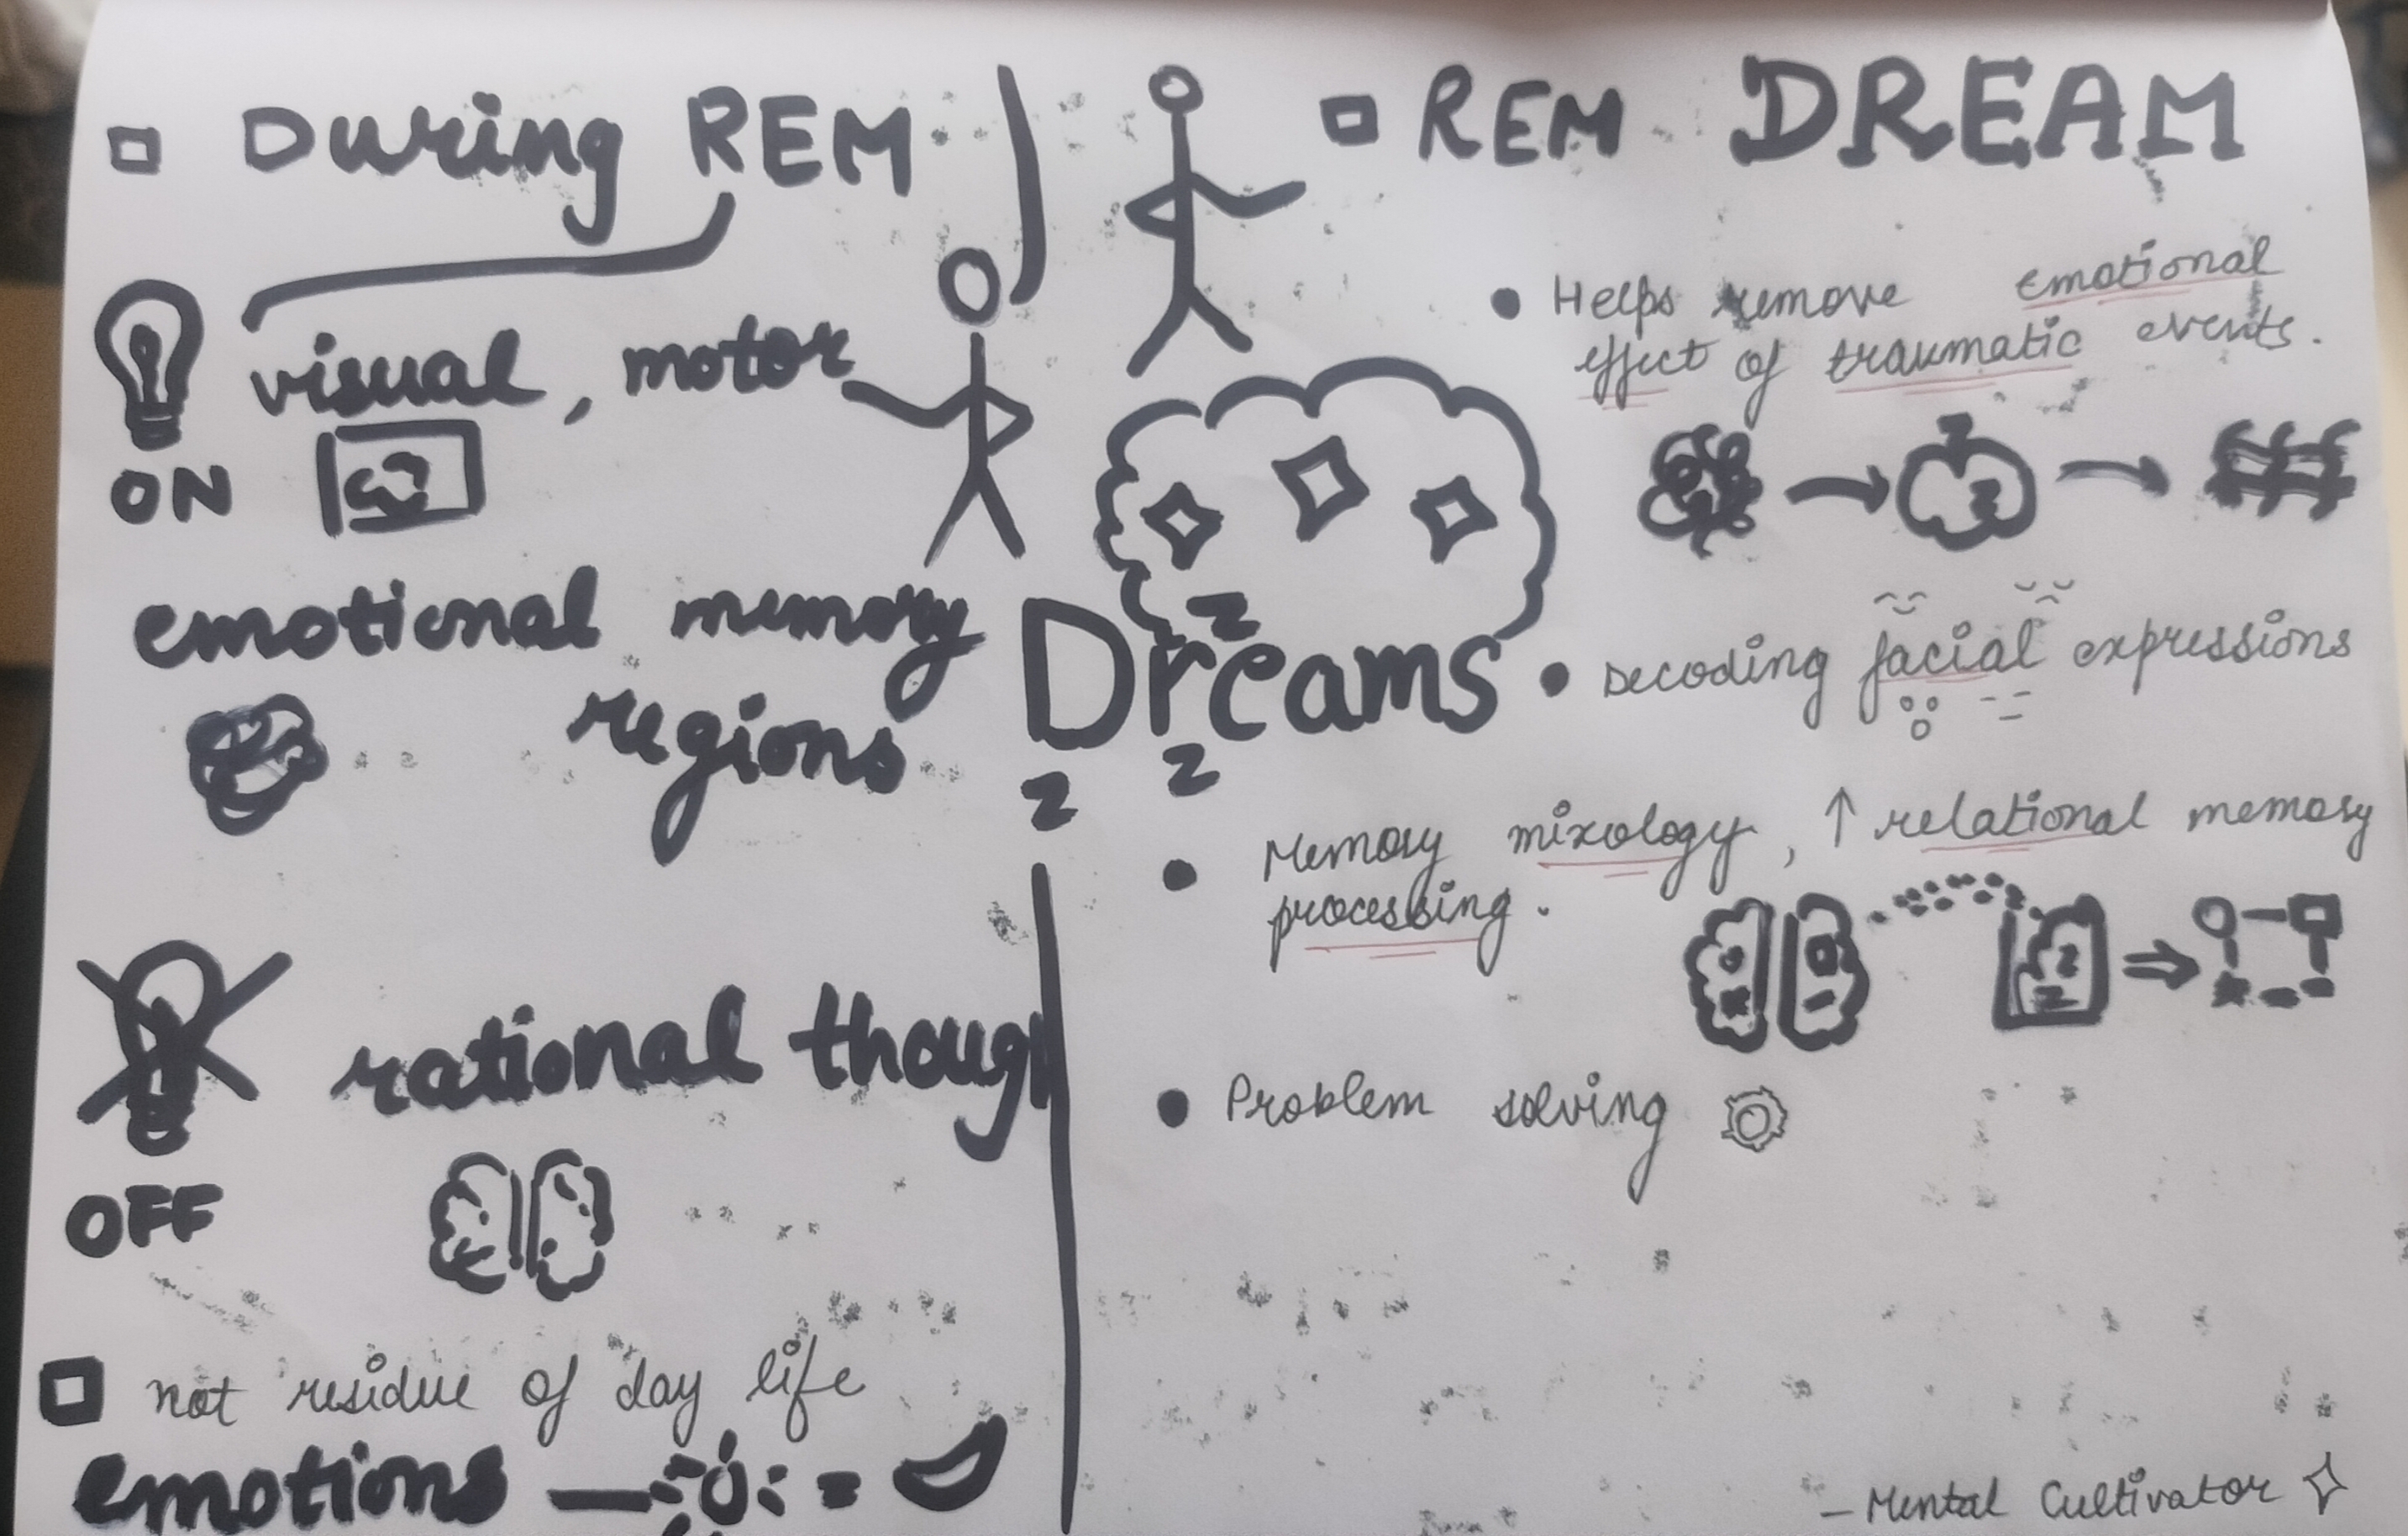 During REM
visual, motor
ON
emotional memory
regions
rational though
OFF
not residue of day life
emotions — = 
z
Dreams
z
z
REM DREAM
• Helps remove emotional
effect of traumatic events.
• Decoding facial expressions
• Memory mixology, ↑ relational memory
processing.
• Problem solving
- Mental Cultivator